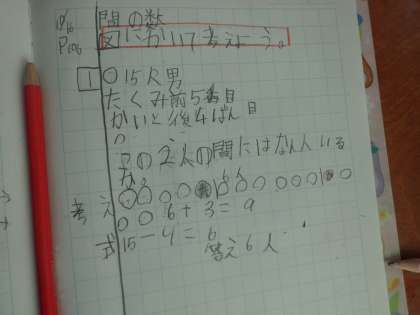 12/16
P106
間の数
図にかいて考えよう。
1 ○15人男
たくみ前5番目
かいと後4ばん目
の
この2人の間にはなん人いる
な。
考え 6+3=9
式 15-4=6
答え6人